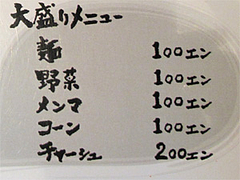 大盛りメニュー
麺 100エン
野菜 100エン
メンマ 100エン
コーン 100エン
チャーシュ 200エン